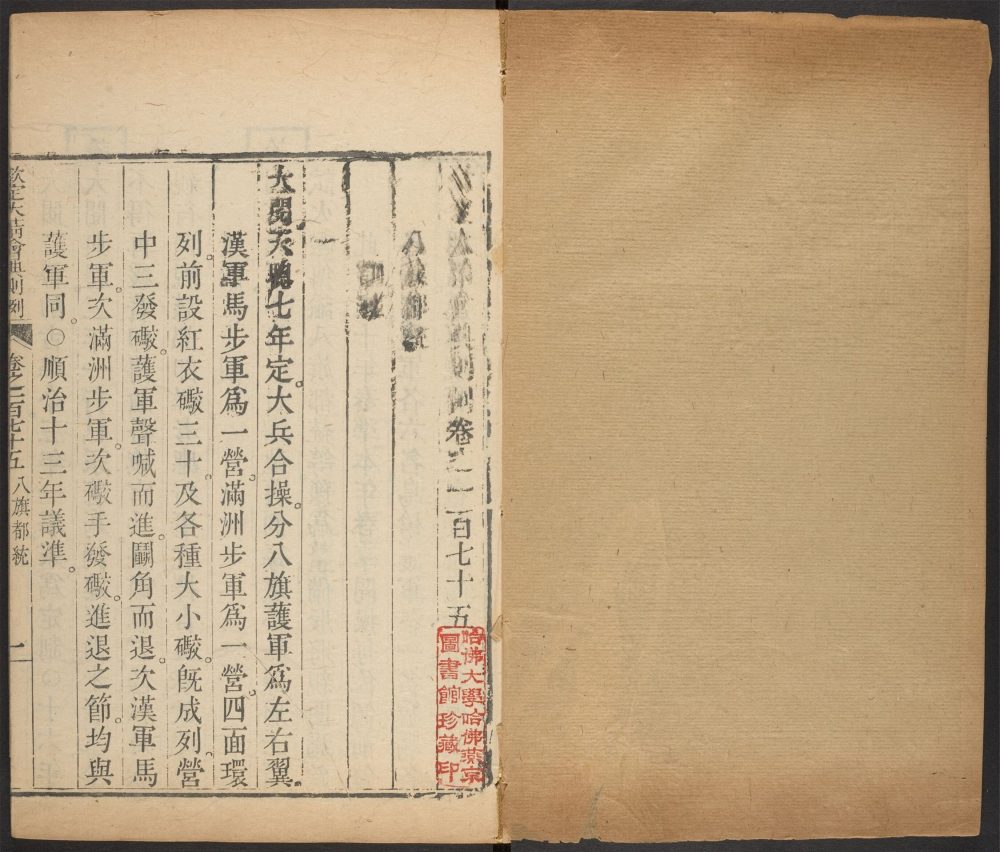 則例卷之一百七十五
哈佛大學哈佛燕京
圖書館珍藏印
八旗都統
大閱天聰七年定。大兵合操。分八旗護軍爲左右翼
漢軍馬步軍爲一營。滿洲步軍爲一營。四面環
列。前設紅衣礮三十。及各種大小礮。既成列。營
中三發礮。護軍聲喊而進。鬭角而退。次漢軍馬
步軍。次滿洲步軍。次礮手發礮。進退之節。均與
護軍同。○順治十三年議準。
欽定大清會典則例 卷之一百七十五 八旗都統 一